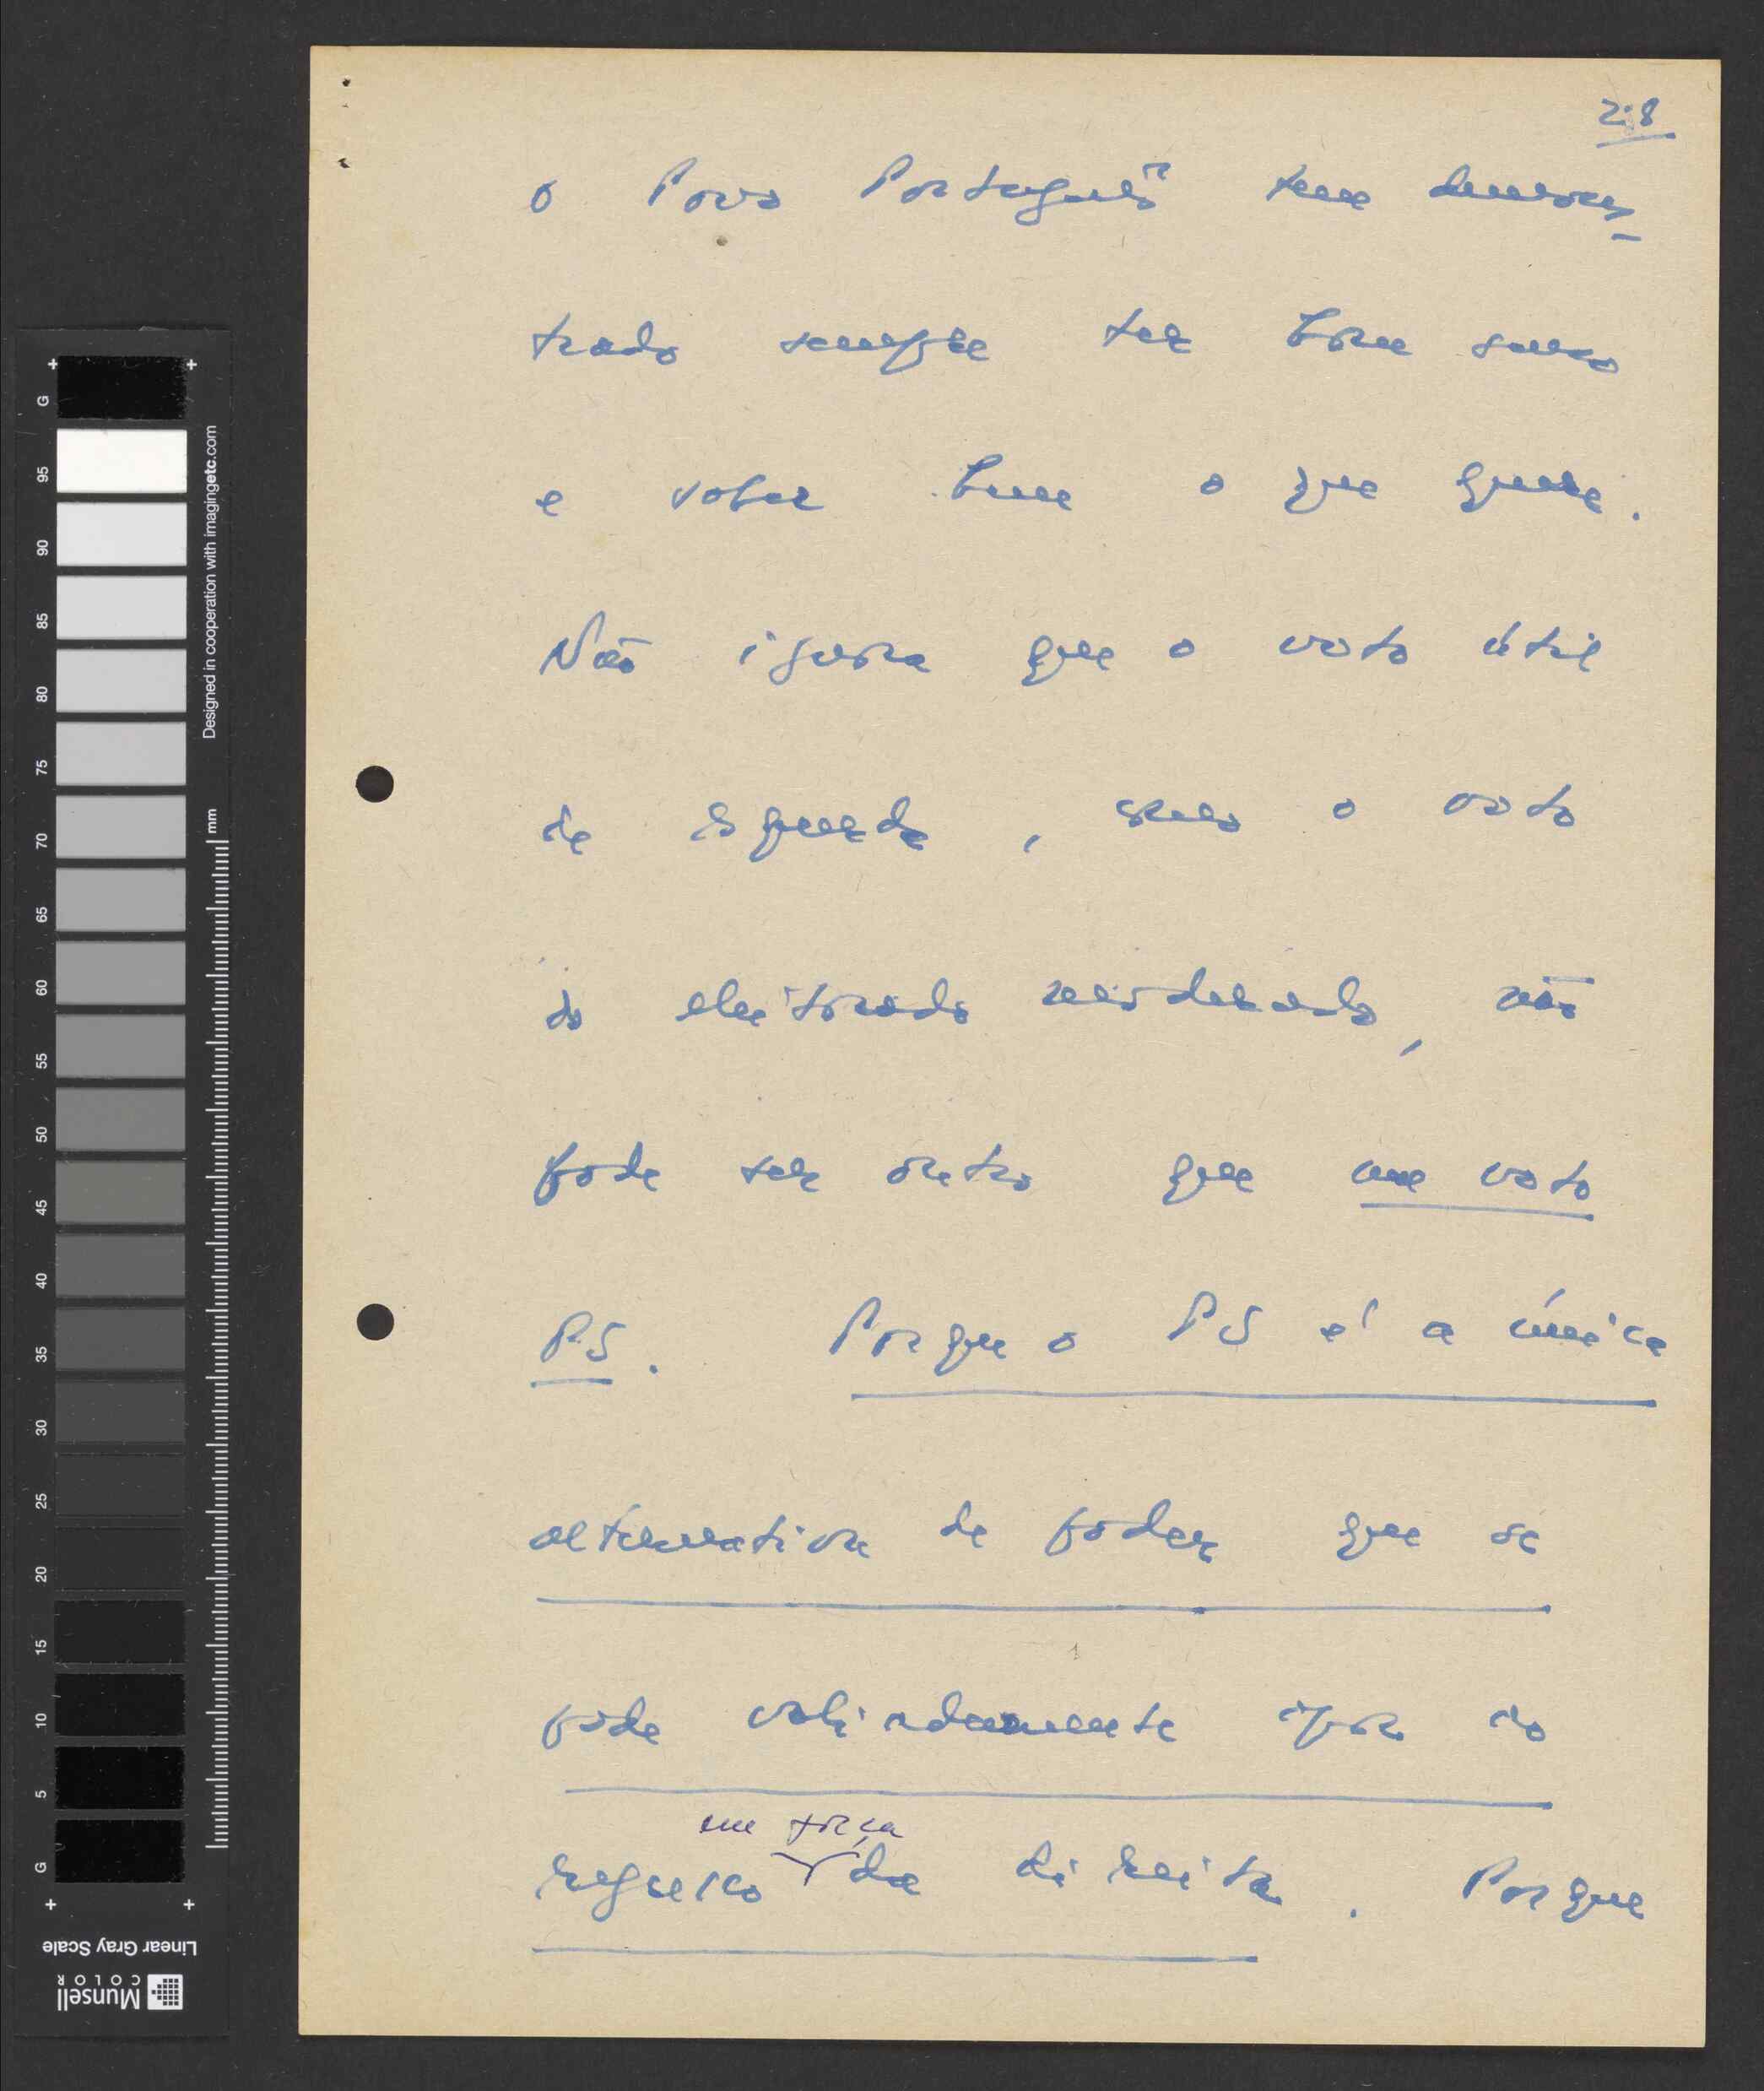 2.8
o Povo Português tem demons-
trado sempre ter bom senso
e saber bem o que quere.
Não ignora que o voto útil
de esquerda, como o voto
do eleitorado moderado, não
pode ser outro que um voto
PS. Porque o PS é a única
alternativa de poder que se
pode validamente opor ao
em força
regresso da direita. Porque
G 95 90 85 80 75 70 65 60 55 50 45 40 35 30 25 20 15 10 5 G
Designed in cooperation with imagingetc.com
mm
Linear Gray Scale
Munsell
COLOR